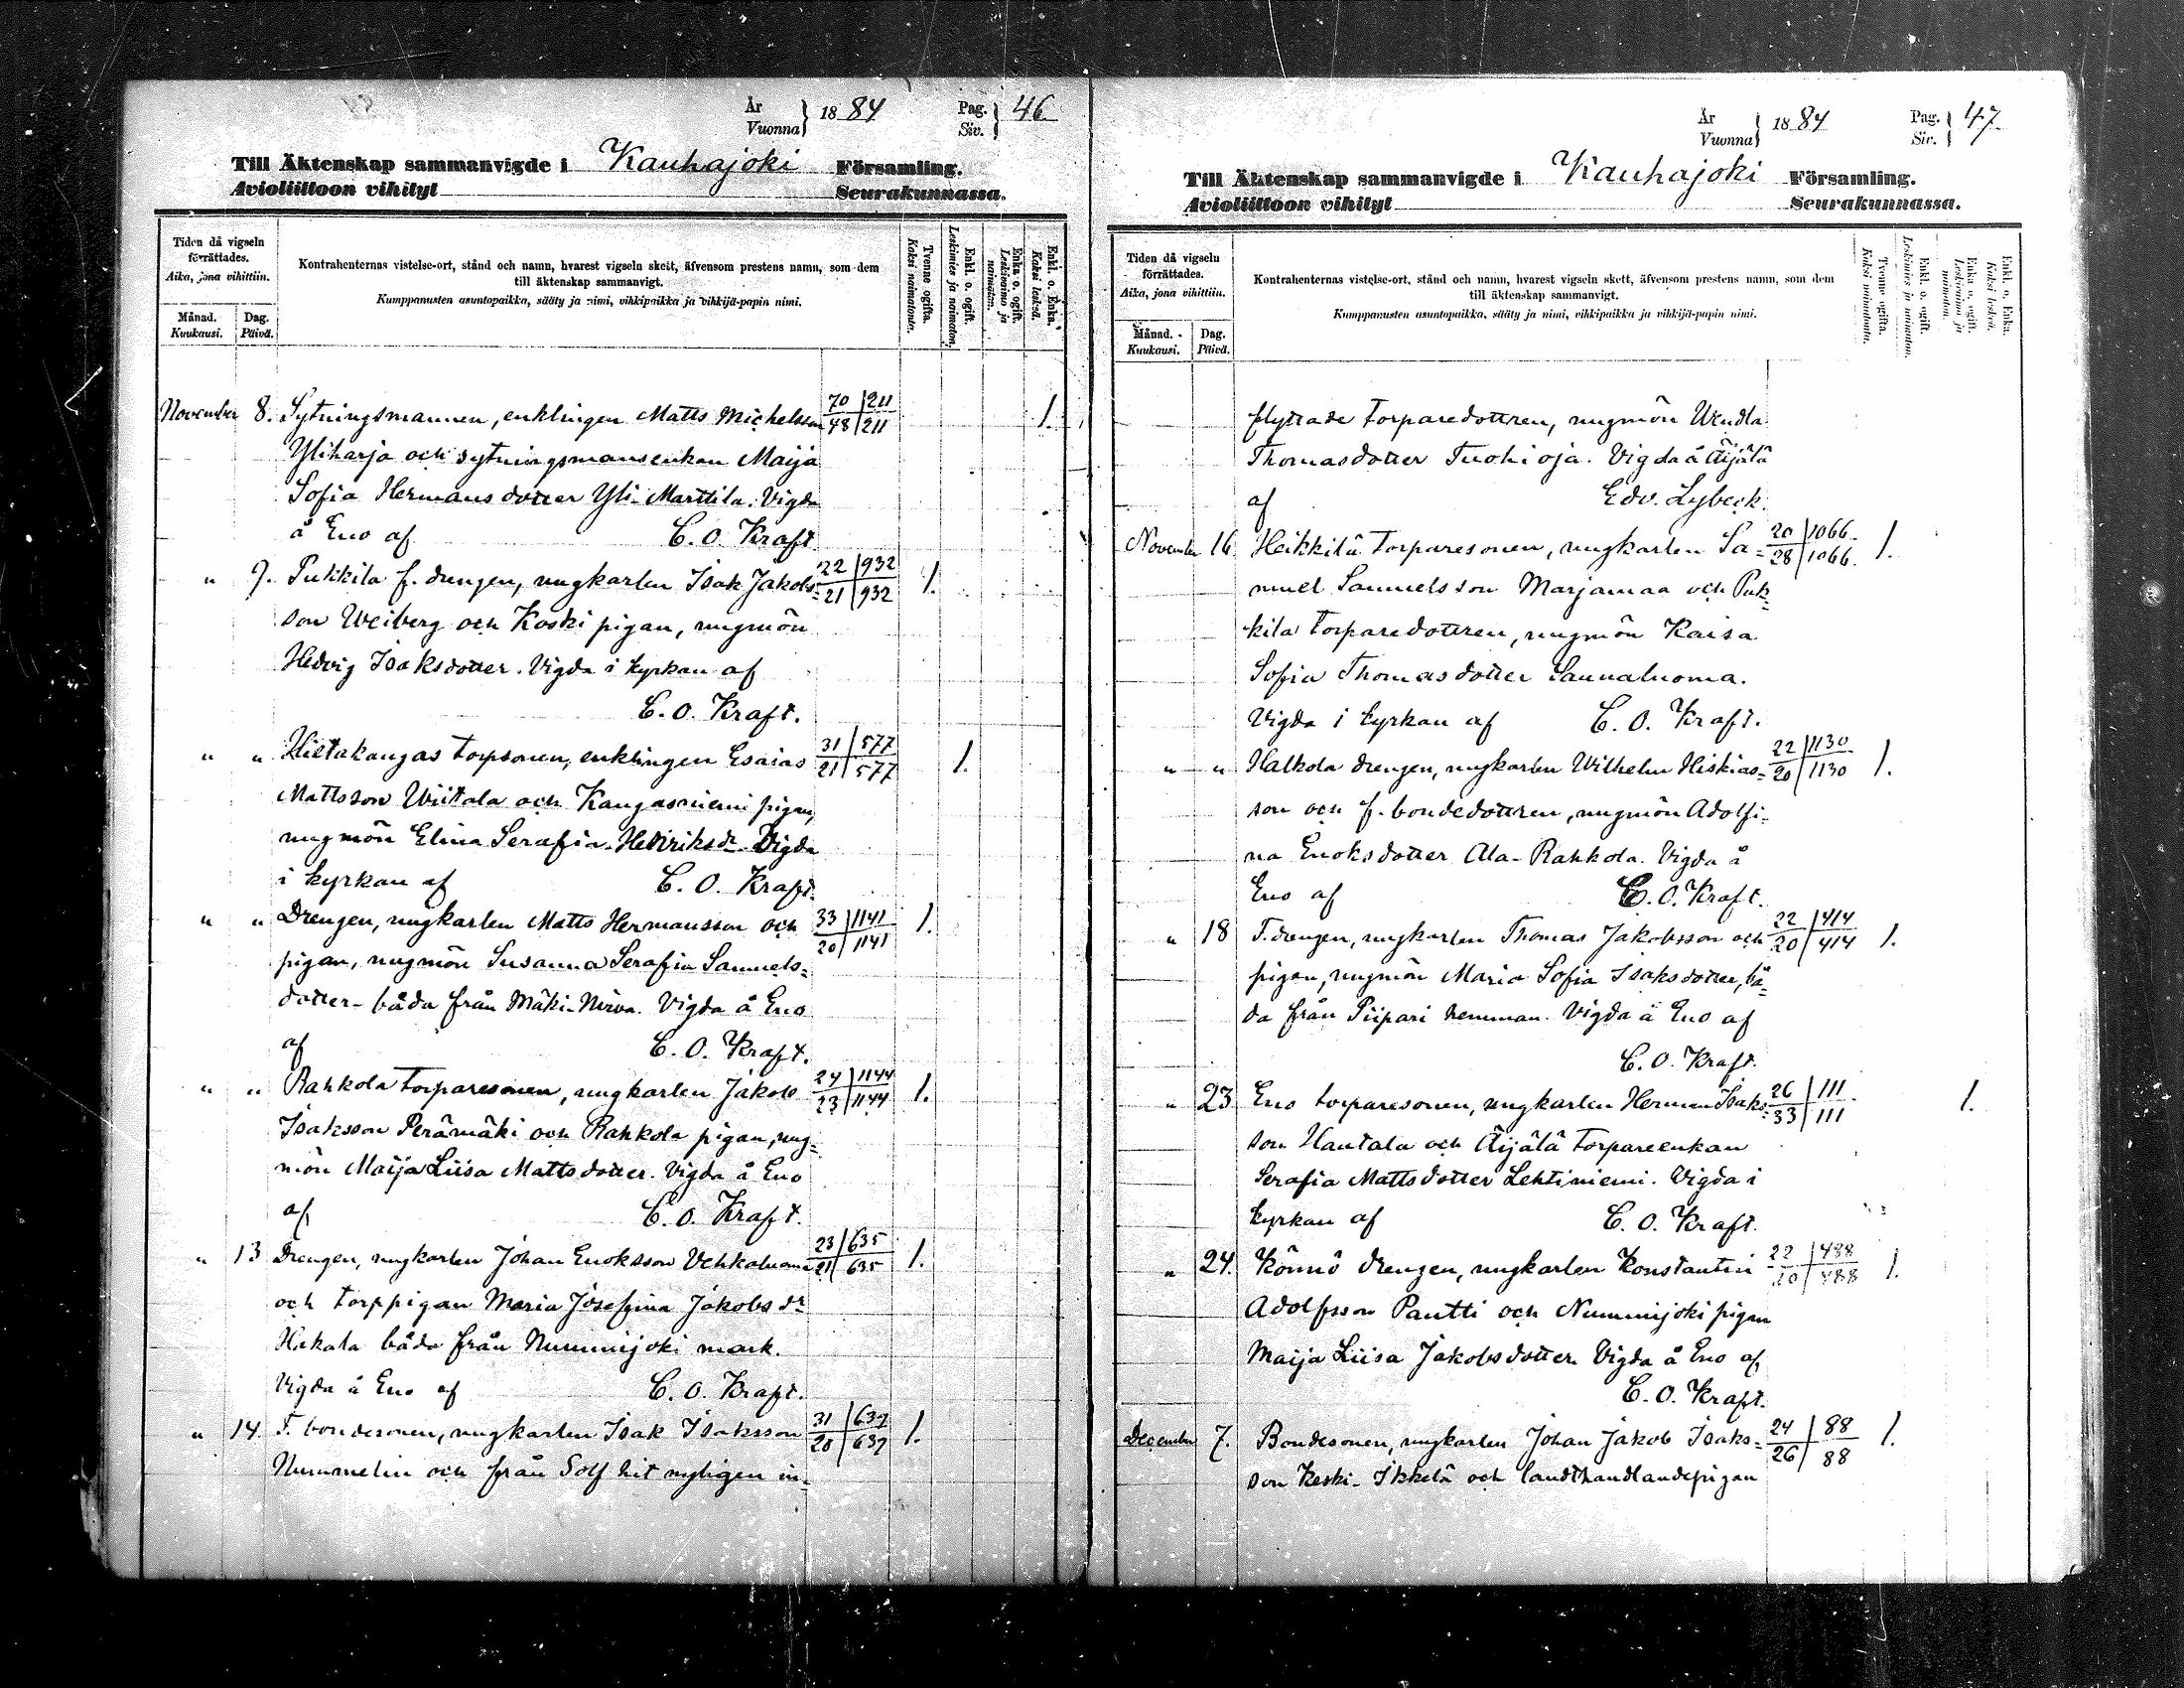 År
Vuonna } 1884 Pag.
Siv. } 46
Till Äktenskap sammanvigde i Kauhajoki Församling.
Avioliittoon vihityt Seurakunnassa.
Tiden då vigseln förrättades.
Aika, jona vihittiin.
Månad.
Kuukausi.
Dag.
Päivä.
Kontrahenternas vistelse-ort, stånd och namn, hvarest vigseln skett, äfvensom prestens namn, som dem
till äktenskap sammanvigt.
Kumppanusten asuntopaikka, sääty ja nimi, vihkipaikka ja vihkijä-papin nimi.
Tvenne ogifta.
Kaksi naimatonta.
Enkl. o. ogift.
Leskimies ja naimaton.
Enka o. ogift.
Leskivaimo ja naimaton.
Enkl. o. Enka.
Kaksi leskeä.
November 8. Sytningsmannen, enklingen Matts Michelsson 70 211 48 211 1.
Yliharja och sytningsmansenkan Maija
Sofia Hermansdotter Yli-Marttila. Vigda
å Eno af C. O. Kraft.
" 9. Pukkila f. drengen, ungkarlen Isak Jakobs= 22 932 21 932 1.
son Weiberg och Koski pigan, ungmön
Hedvig Isaksdotter. Vigda i kyrkan af
C. O. Kraft.
" " Hietakangas torpsonen, enklingen Esaias 31 577 21 577 1.
Mattsson Wiitala och Kangasniemi pigan,
ungmön Elina Serafia Henriksdr. Vigda
i kyrkan af C. O. Kraft.
" " Drengen, ungkarlen Matts Hermansson och 33 1141 20 1141 1.
pigan, ungmön Susanna Serafia Samuels=
dotter - båda från Mäki-Nirva. Vigda å Eno
af C. O. Kraft.
" " Rahkola torparesonen, ungkarlen Jakob 24 1144 23 1144 1.
Isaksson Perämäki och Rahkola pigan, ung=
mön Maija Liisa Mattsdotter. Vigda å Eno
af C. O. Kraft.
" 13 Drengen, ungkarlen Johan Enoksson Vehkaluoma 23 635 21 635 1.
och torppigan Maria Josefina Jakobsdr
Hakala båda från Nummijoki mark.
Vigda å Eno af C. O. Kraft.
" 14. F. bondesonen, ungkarlen Isak Isaksson 31 639 20 639 1.
Nummelin och från Solf hit nyligen in=
År
Vuonna } 1884 Pag.
Siv. } 47
Till Äktenskap sammanvigde i Kauhajoki Församling.
Avioliittoon vihityt Seurakunnassa.
Tiden då vigseln förrättades.
Aika, jona vihittiin.
Månad.
Kuukausi.
Dag.
Päivä.
Kontrahenternas vistelse-ort, stånd och namn, hvarest vigseln skett, äfvensom prestens namn, som dem
till äktenskap sammanvigt.
Kumppanusten asuntopaikka, sääty ja nimi, vihkipaikka ja vihkijä-papin nimi.
Tvenne ogifta.
Kaksi naimatonta.
Enkl. o. ogift.
Leskimies ja naimaton.
Enka o. ogift.
Leskivaimo ja naimaton.
Enkl. o. Enka.
Kaksi leskeä.
flyttade torparedottren, ungmön Wendla
Thomasdotter Tuohioja. Vigda å Äijälä
af Edv. Lybeck.
November 16. Heikkilä torparesonen, ungkarlen Sa= 20 1066. 28 1066. 1.
muel Samuelsson Marjamaa och Puk=
kila torparedottren, ungmön Kaisa
Sofia Thomasdotter Saunaluoma.
Vigda i kyrkan af C. O. Kraft.
" " Halkola drengen, ungkarlen Wilhelm Hiskias= 22 1130 20 1130 1.
son och f. bondedottren, ungmön Adolfi-
na Enoksdotter Ala-Rahkola. Vigda å
Eno af C. O. Kraft.
" 18 T. drengen, ungkarlen Thomas Jakobsson och 22 414 20 414 1.
pigan, ungmön Maria Sofia Isaksdotter, bå=
da från Piipari hemman. Vigda å Eno af
C. O. Kraft.
" 23 Eno torparesonen, ungkarlen Herman Isaks= 26 111 33 111 1.
son Hautala och Äijälä torpareenkan
Serafia Mattsdotter Lehtiniemi. Vigda i
kyrkan af C. O. Kraft.
" 24. Könnö drengen, ungkarlen Konstantin 22 488 20 488 1.
Adolfsson Pantti och Nummijoki pigan
Maija Liisa Jakobsdotter. Vigda å Eno af
C. O. Kraft.
December 7. Bondesonen, ungkarlen Johan Jakob Isaks= 24 88 26 88 1.
son Keski-Ikkelä och landthandlandepigan